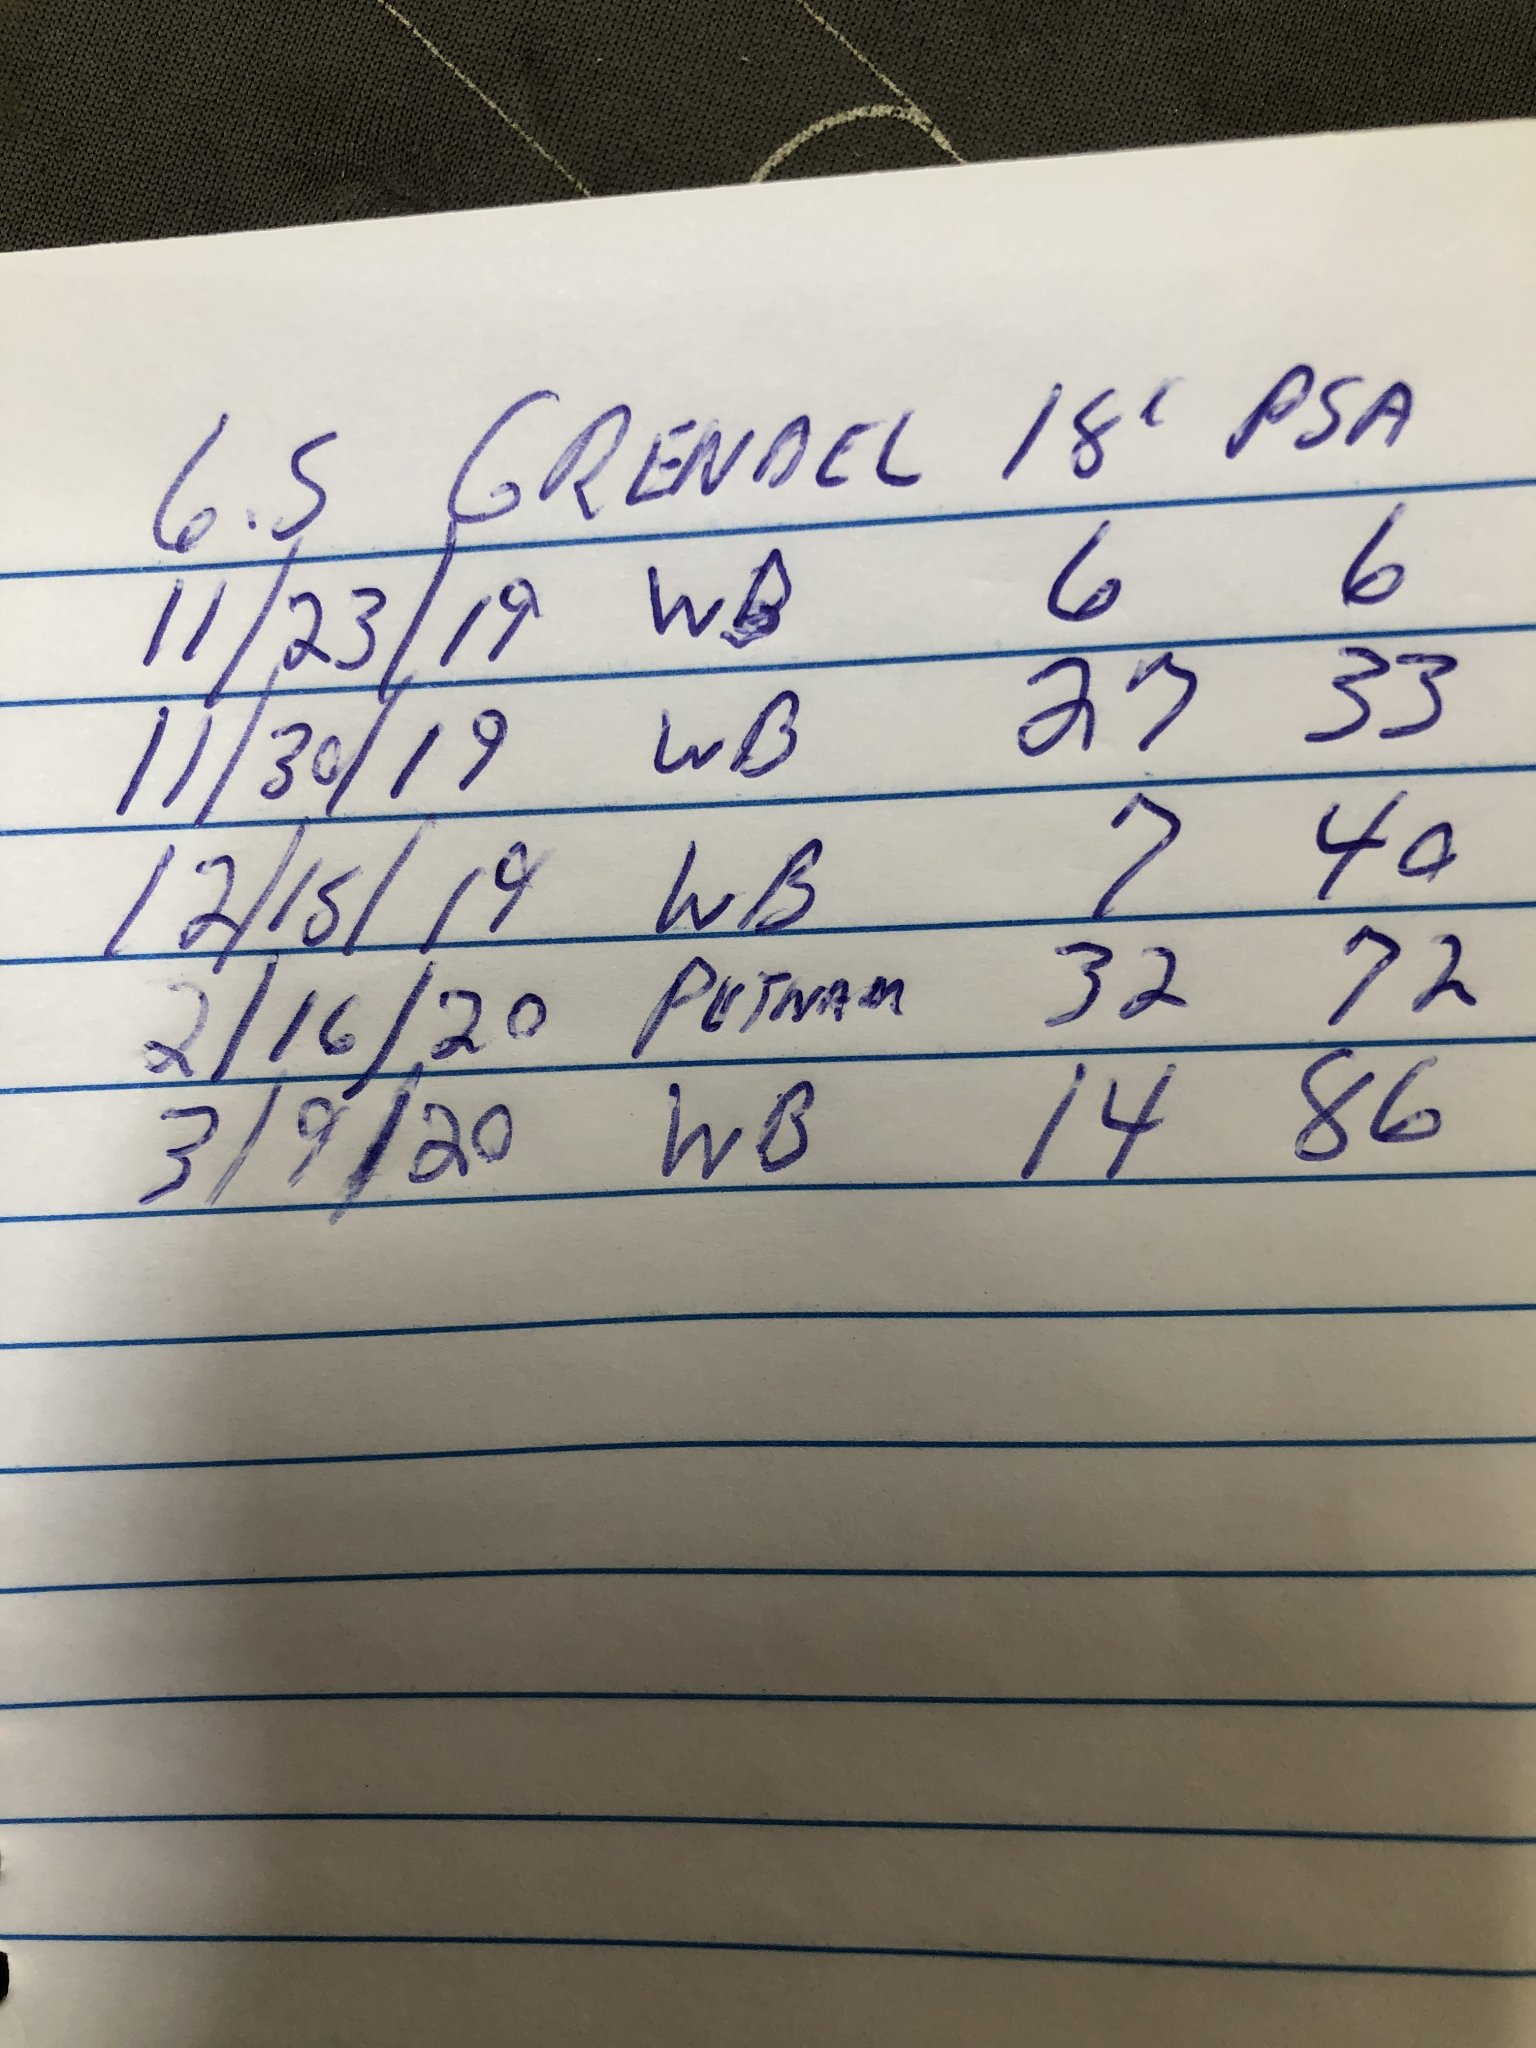 6.5 GRENDEL 18" PSA
11/23/19 WB 6 6
11/30/19 WB 27 33
12/15/19 WB 7 40
2/16/20 PUTNAM 32 72
3/9/20 WB 14 86